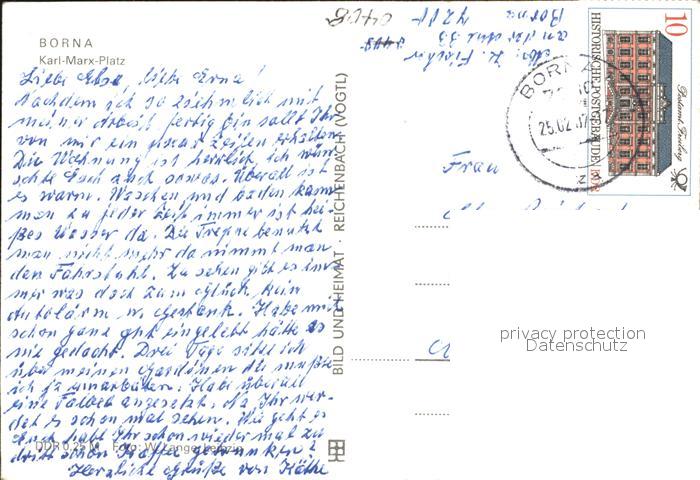 BORNA
Karl-Marx-Platz
Liebe Elsa, liebe Erna!
Nachdem ich so ziemlich mit
meiner Arbeit fertig bin sollt Ihr
von mir ein paar Zeilen erhalten.
Die Wohnung ist herrlich, ich wün-
schte Euch auch sowas. Überall ist
es warm. Waschen und baden kann
man zu jeder Zeit immer ist hei-
ßes Wasser da. Die Treppe benutzt
man nicht mehr da nimmt man
den Fahrstuhl. Zu sehen gibt es im-
mer was doch zum Glück kein
Autolärm u. Gestank. Habe mich
schon ganz gut eingelebt hätte es
nie gedacht. Drei Tage saß ich
über meinen Gardinen die mußte
ich ja umarbeiten. Habe überall
eine Falbel angesetzt. Na Ihr wer-
det es schon mal sehen. Wie geht es
Euch habt Ihr schon wieder mal zu
dritt schön Kaffee getrunken?
Herzliche Grüße von Käthe
DDR 0,25 M Foto: W. Lange, Leipzig
BILD UND HEIMAT · REICHENBACH (VOGTL)
Abs. K. Fischer
an der 33
Borna 7200
Frau
BORNA
25.02.87
10
HISTORISCHE POSTGEBÄUDE DDR
Postamt Freiberg
privacy protection
Datenschutz